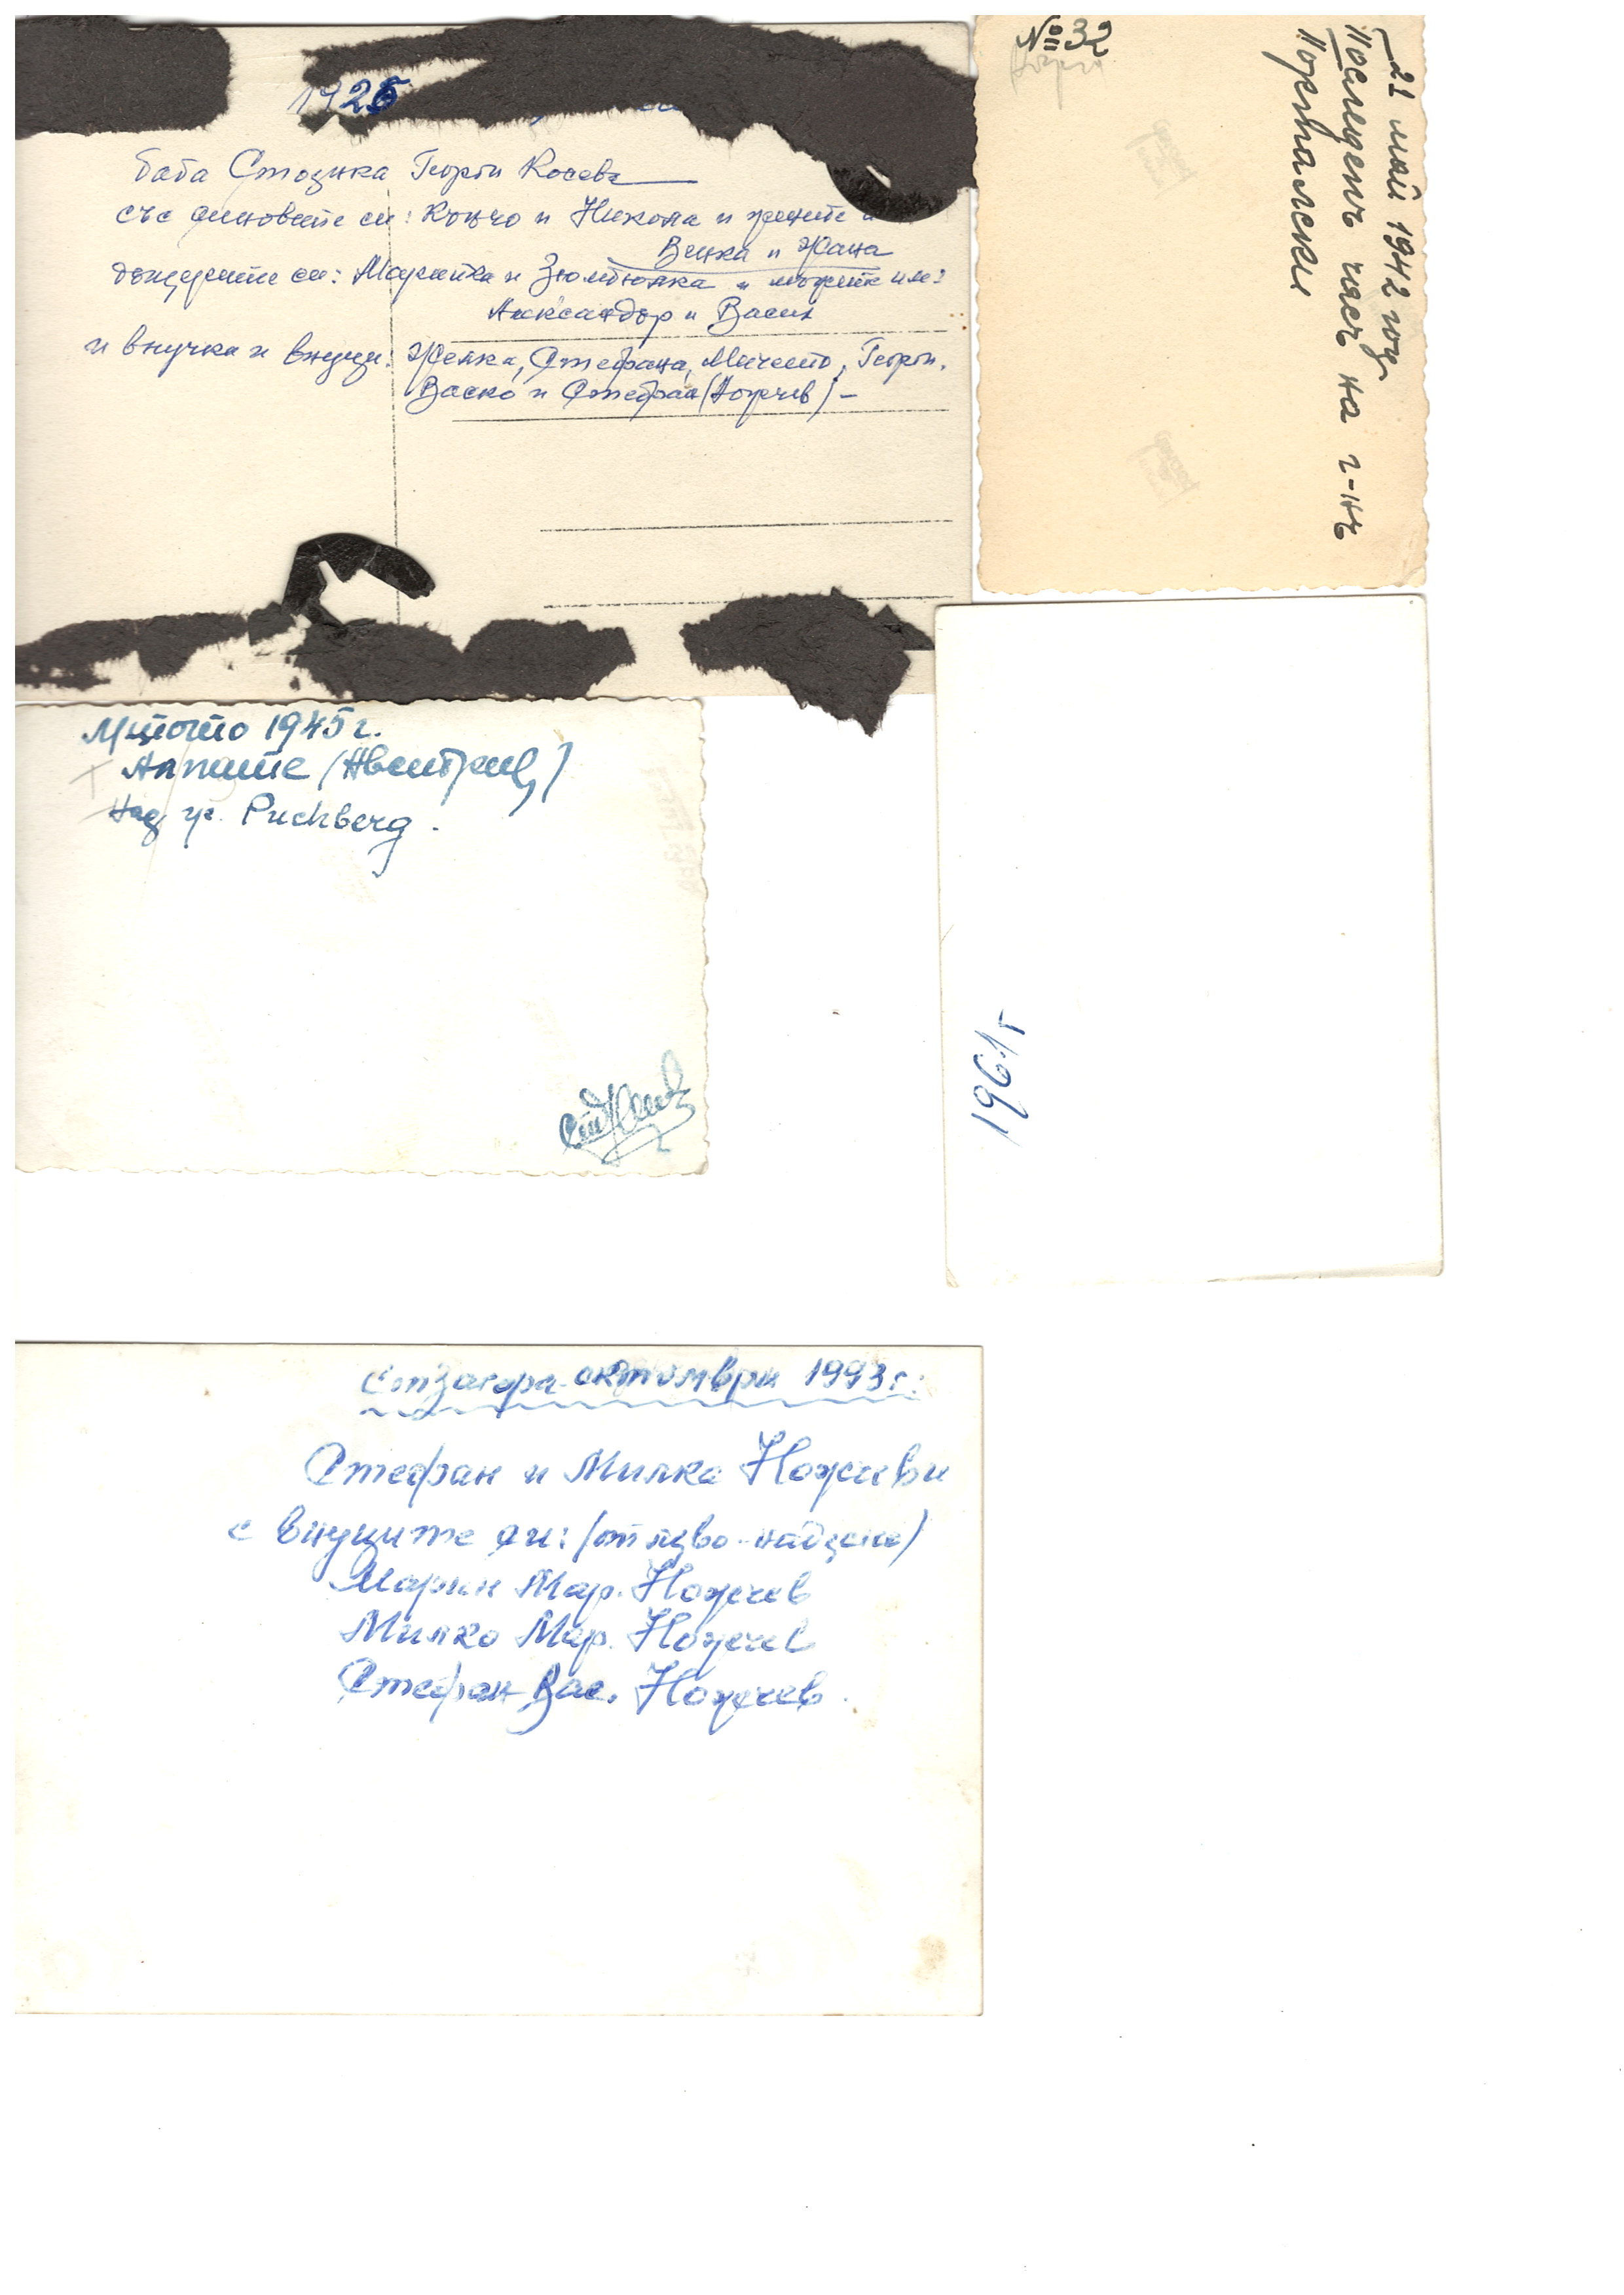 1925
баба Стоянка Георги Косева
със синовете си: Кънчо и Никола и жените
Венка и Жана
дъщерите си: Марийка и Зюмбюлка и мъжете им:
Александър и Васил
и внучка и внуци: Желка, Стефана, Мичето, Георги,
Васко и Стефан (Ножчев) –
№ 32
21 май 1942 год
Последенъ часъ на г-нъ
Порталски
Лятото 1945 г.
Алпите (Австрия)
над гр. Puchberg.
1961 г
Ст Загора - октомври 1993 г.
Стефан и Милка Ножчеви
с внуците си: (от ляво - надясно)
Марин Мар. Ножчев
Милко Мар. Ножчев
Стефан Вас. Ножчев.